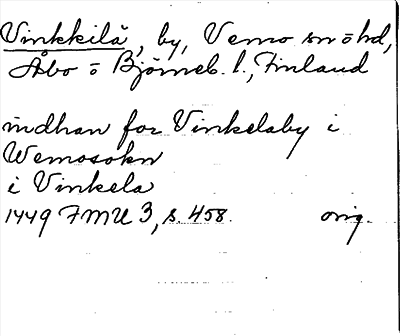 Vinkkilä, by, Vemo sn ö hd,
Åbo ö Björneb. l., Finland
indhan for Vinkelaby i
Wemosokn
i Vinkela
1449 FMU 3, s. 458. orig.